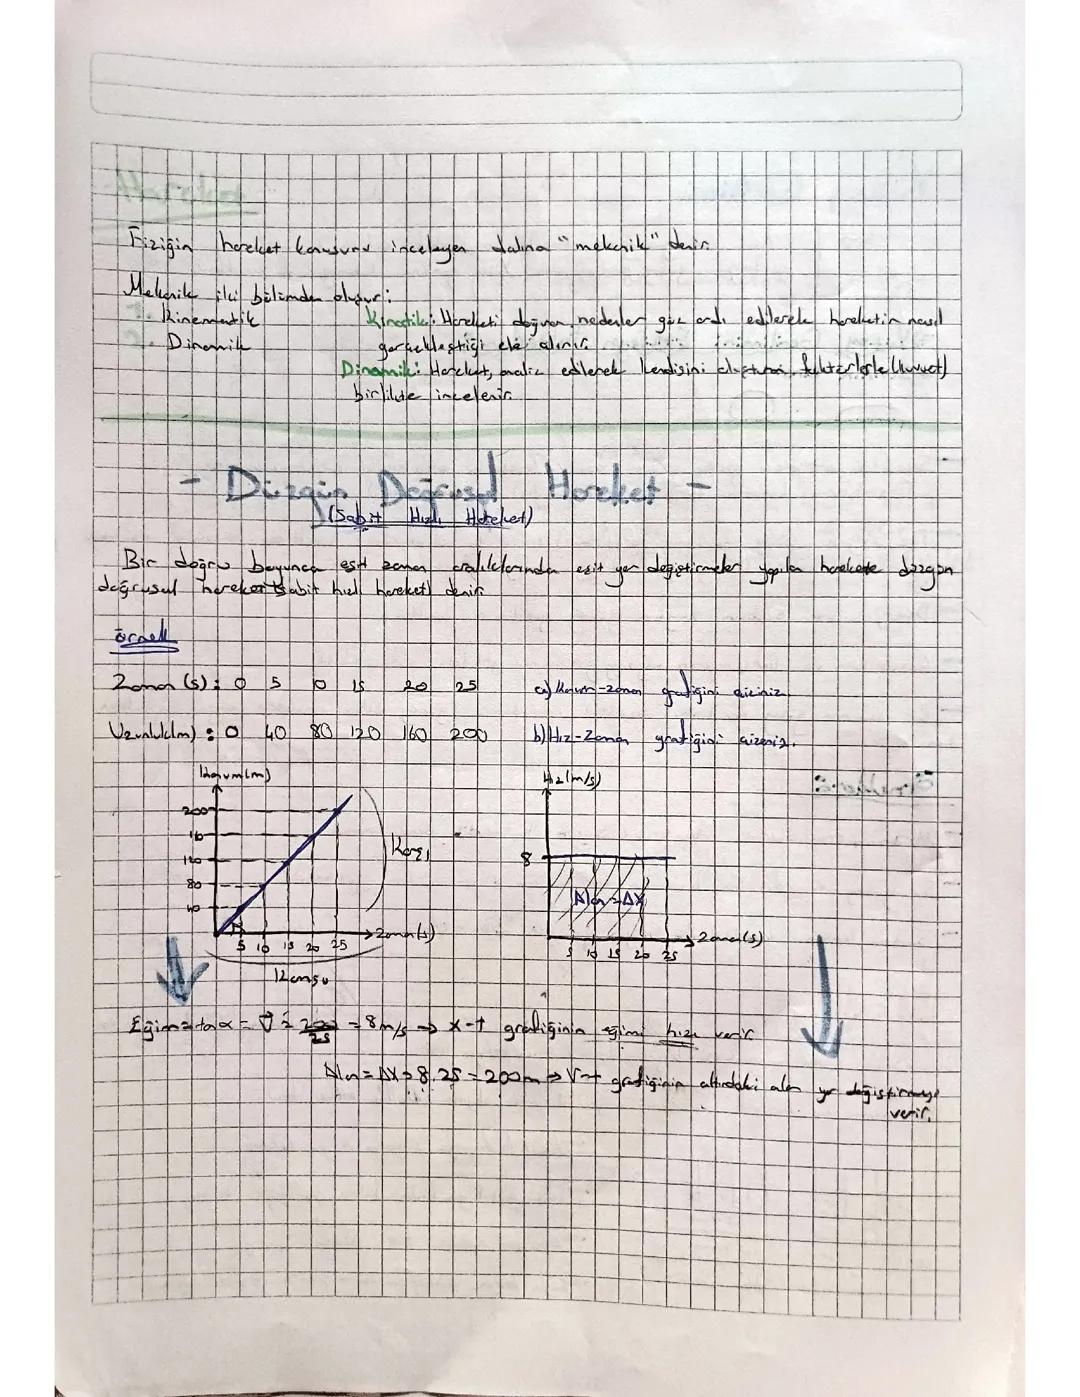 Fiziğin hareket konusunu inceleyen dalına "mekanik" denir.
Mekanik iki bölümden oluşur:
Kinematik
Dinamik
Kinetik: Hareketi doğuran nedenler göz ardı edilerek hareketin nasıl
gerçekleştiği ele alınır.
Dinamik: Hareket, analiz edilerek kendisini oluşturan faktörlerle (kuvvet)
birlikte incelenir.
- Düzgün Doğrusal Hareket -
(Sabit Hızlı Hareket)
Bir doğru boyunca eşit zaman aralıklarında eşit yer değiştirmeler yapılan harekete düzgün
doğrusal hareket (sabit hızlı hareket) denir.
örnek
Zaman (s): 0 5 10 15 20 25
Uzunluk(m): 0 40 80 120 160 200
a) Konum-zaman grafiğini çiziniz.
b) Hız-Zaman grafiğini çiziniz.
Konum(m)
200
16
120
80
40
5 10 15 20 25
Zaman(s)
Karşı
Komşu
Hız(m/s)
8
Alan = ΔX
5 10 15 20 25
Zaman(s)
Eğim = tan α = V = 200/25 = 8 m/s → x-t grafiğinin eğimi hızı verir.
Alan = ΔX = 8.25 = 200m → V-t grafiğinin altındaki alan yer değiştirmeyi
verir.